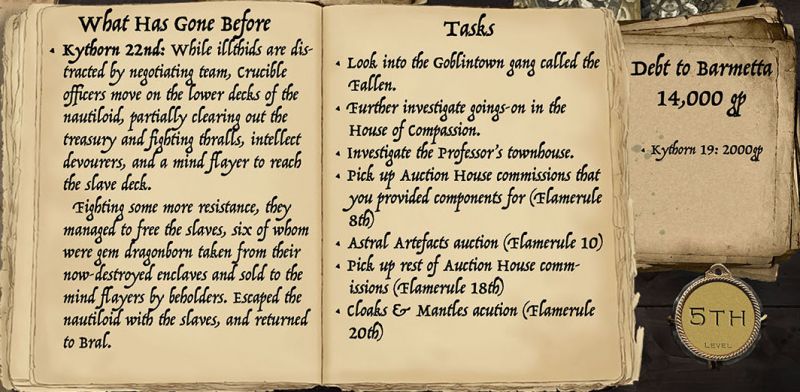 What Has Gone Before
• Kythorn 22nd: While illthids are dis-
tracted by negotiating team, Crucible
officers move on the lower decks of the
nautiloid, partially clearing out the
treasury and fighting thralls, intellect
devourers, and a mind flayer to reach
the slave deck.
Fighting some more resistance, they
managed to free the slaves, six of whom
were gem dragonborn taken from their
now-destroyed enclaves and sold to the
mind flayers by beholders. Escaped the
nautiloid with the slaves, and returned
to Bral.
Tasks
• Look into the Goblintown gang called the
Fallen.
• Further investigate goings-on in the
House of Compassion.
• Investigate the Professor's townhouse.
• Pick up Auction House commissions that
you provided components for (Flamerule
8th)
• Astral Artefacts auction (Flamerule 10)
• Pick up rest of Auction House comm-
issions (Flamerule 18th)
• Cloaks & Mantles acution (Flamerule
20th)
Debt to Barmetta
14,000 gp
• Kythorn 19: 2000gp
5TH
LEVEL